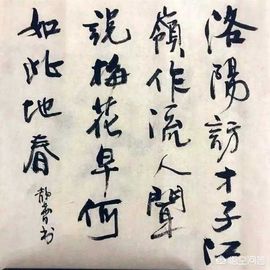 洛陽訪才子江
嶺作流人聞
說梅花早何
如此地春
悟空问答